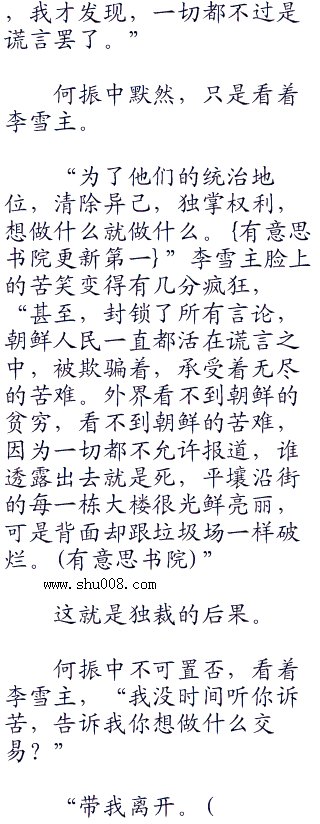 ，我才发现，一切都不过是
谎言罢了。”
何振中默然，只是看着
李雪主。
“为了他们的统治地
位，清除异己，独掌权利，
想做什么就做什么。{有意思
书院更新第一}”李雪主脸上
的苦笑变得有几分疯狂，
“甚至，封锁了所有言论，
朝鲜人民一直都活在谎言之
中，被欺骗着，承受着无尽
的苦难。外界看不到朝鲜的
贫穷，看不到朝鲜的苦难，
因为一切都不允许报道，谁
透露出去就是死，平壤沿街
的每一栋大楼很光鲜亮丽，
可是背面却跟垃圾场一样破
烂。(有意思书院)”
www.shu008.com
这就是独裁的后果。
何振中不可置否，看着
李雪主，“我没时间听你诉
苦，告诉我你想做什么交
易？”
“带我离开。(